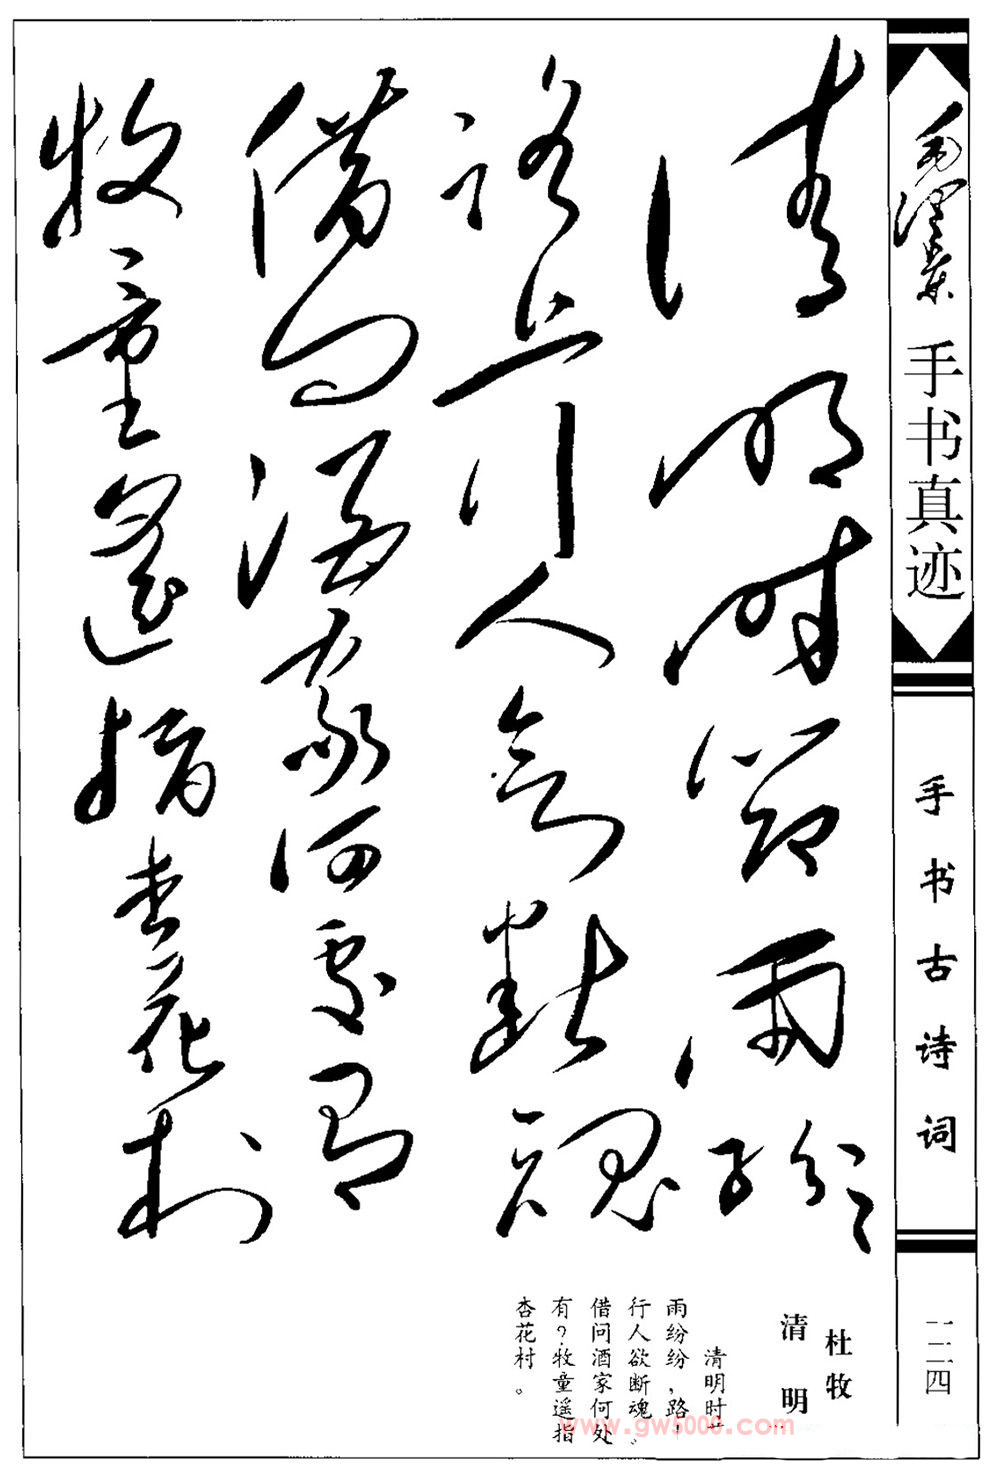 毛泽东 手书真迹
手书古诗词
清明时节雨纷纷
路上行人欲断魂
借问酒家何处有
牧童遥指杏花村
杜牧
清明
清明时
雨纷纷，路
行人欲断魂。
借问酒家何处
有？牧童遥指
杏花村。
www.gw5000.com